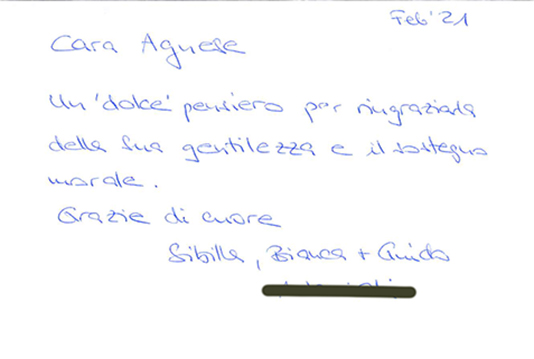 Feb '21
Cara Agnese
Un 'dolce' pensiero per ringraziarla
della Sua gentilezza e il sostegno
morale.
Grazie di cuore
Sibilla, Bianca + Guido